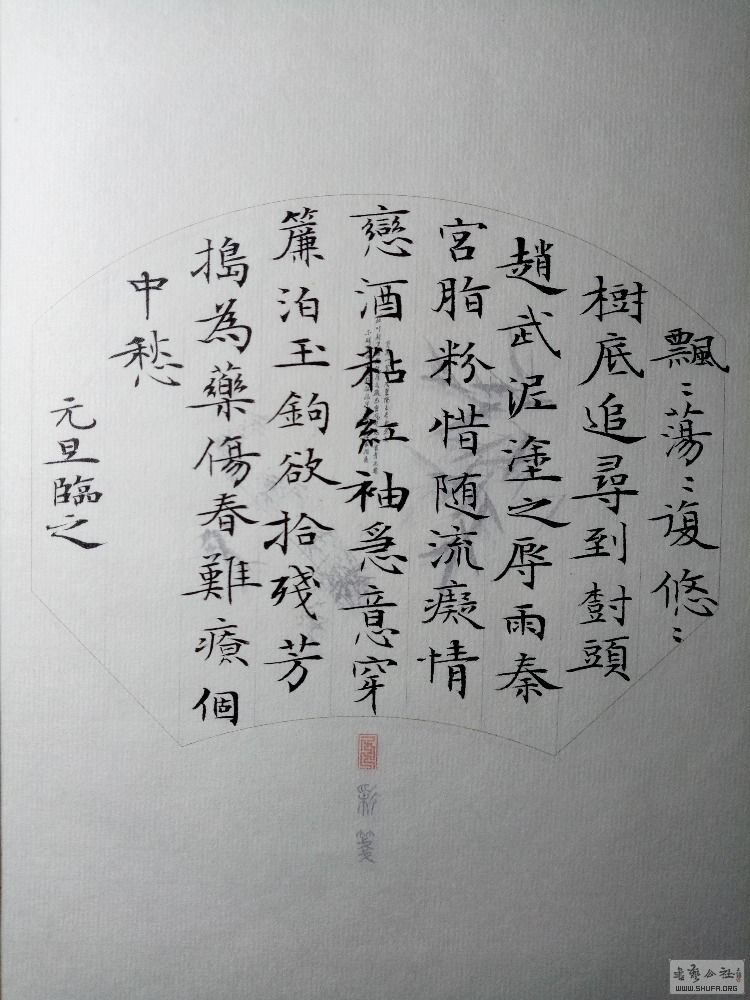 飄〻蕩〻復悠〻
樹底追尋到樹頭
趙武泥塗之辱雨秦
宮脂粉惜随流癡情
戀酒粘紅袖急意穿
簾泊玉鉤欲拾殘芳
搗為藥傷春難療個
中愁
元旦臨之
彩箋
书藝公社
WWW.SHUFA.ORG